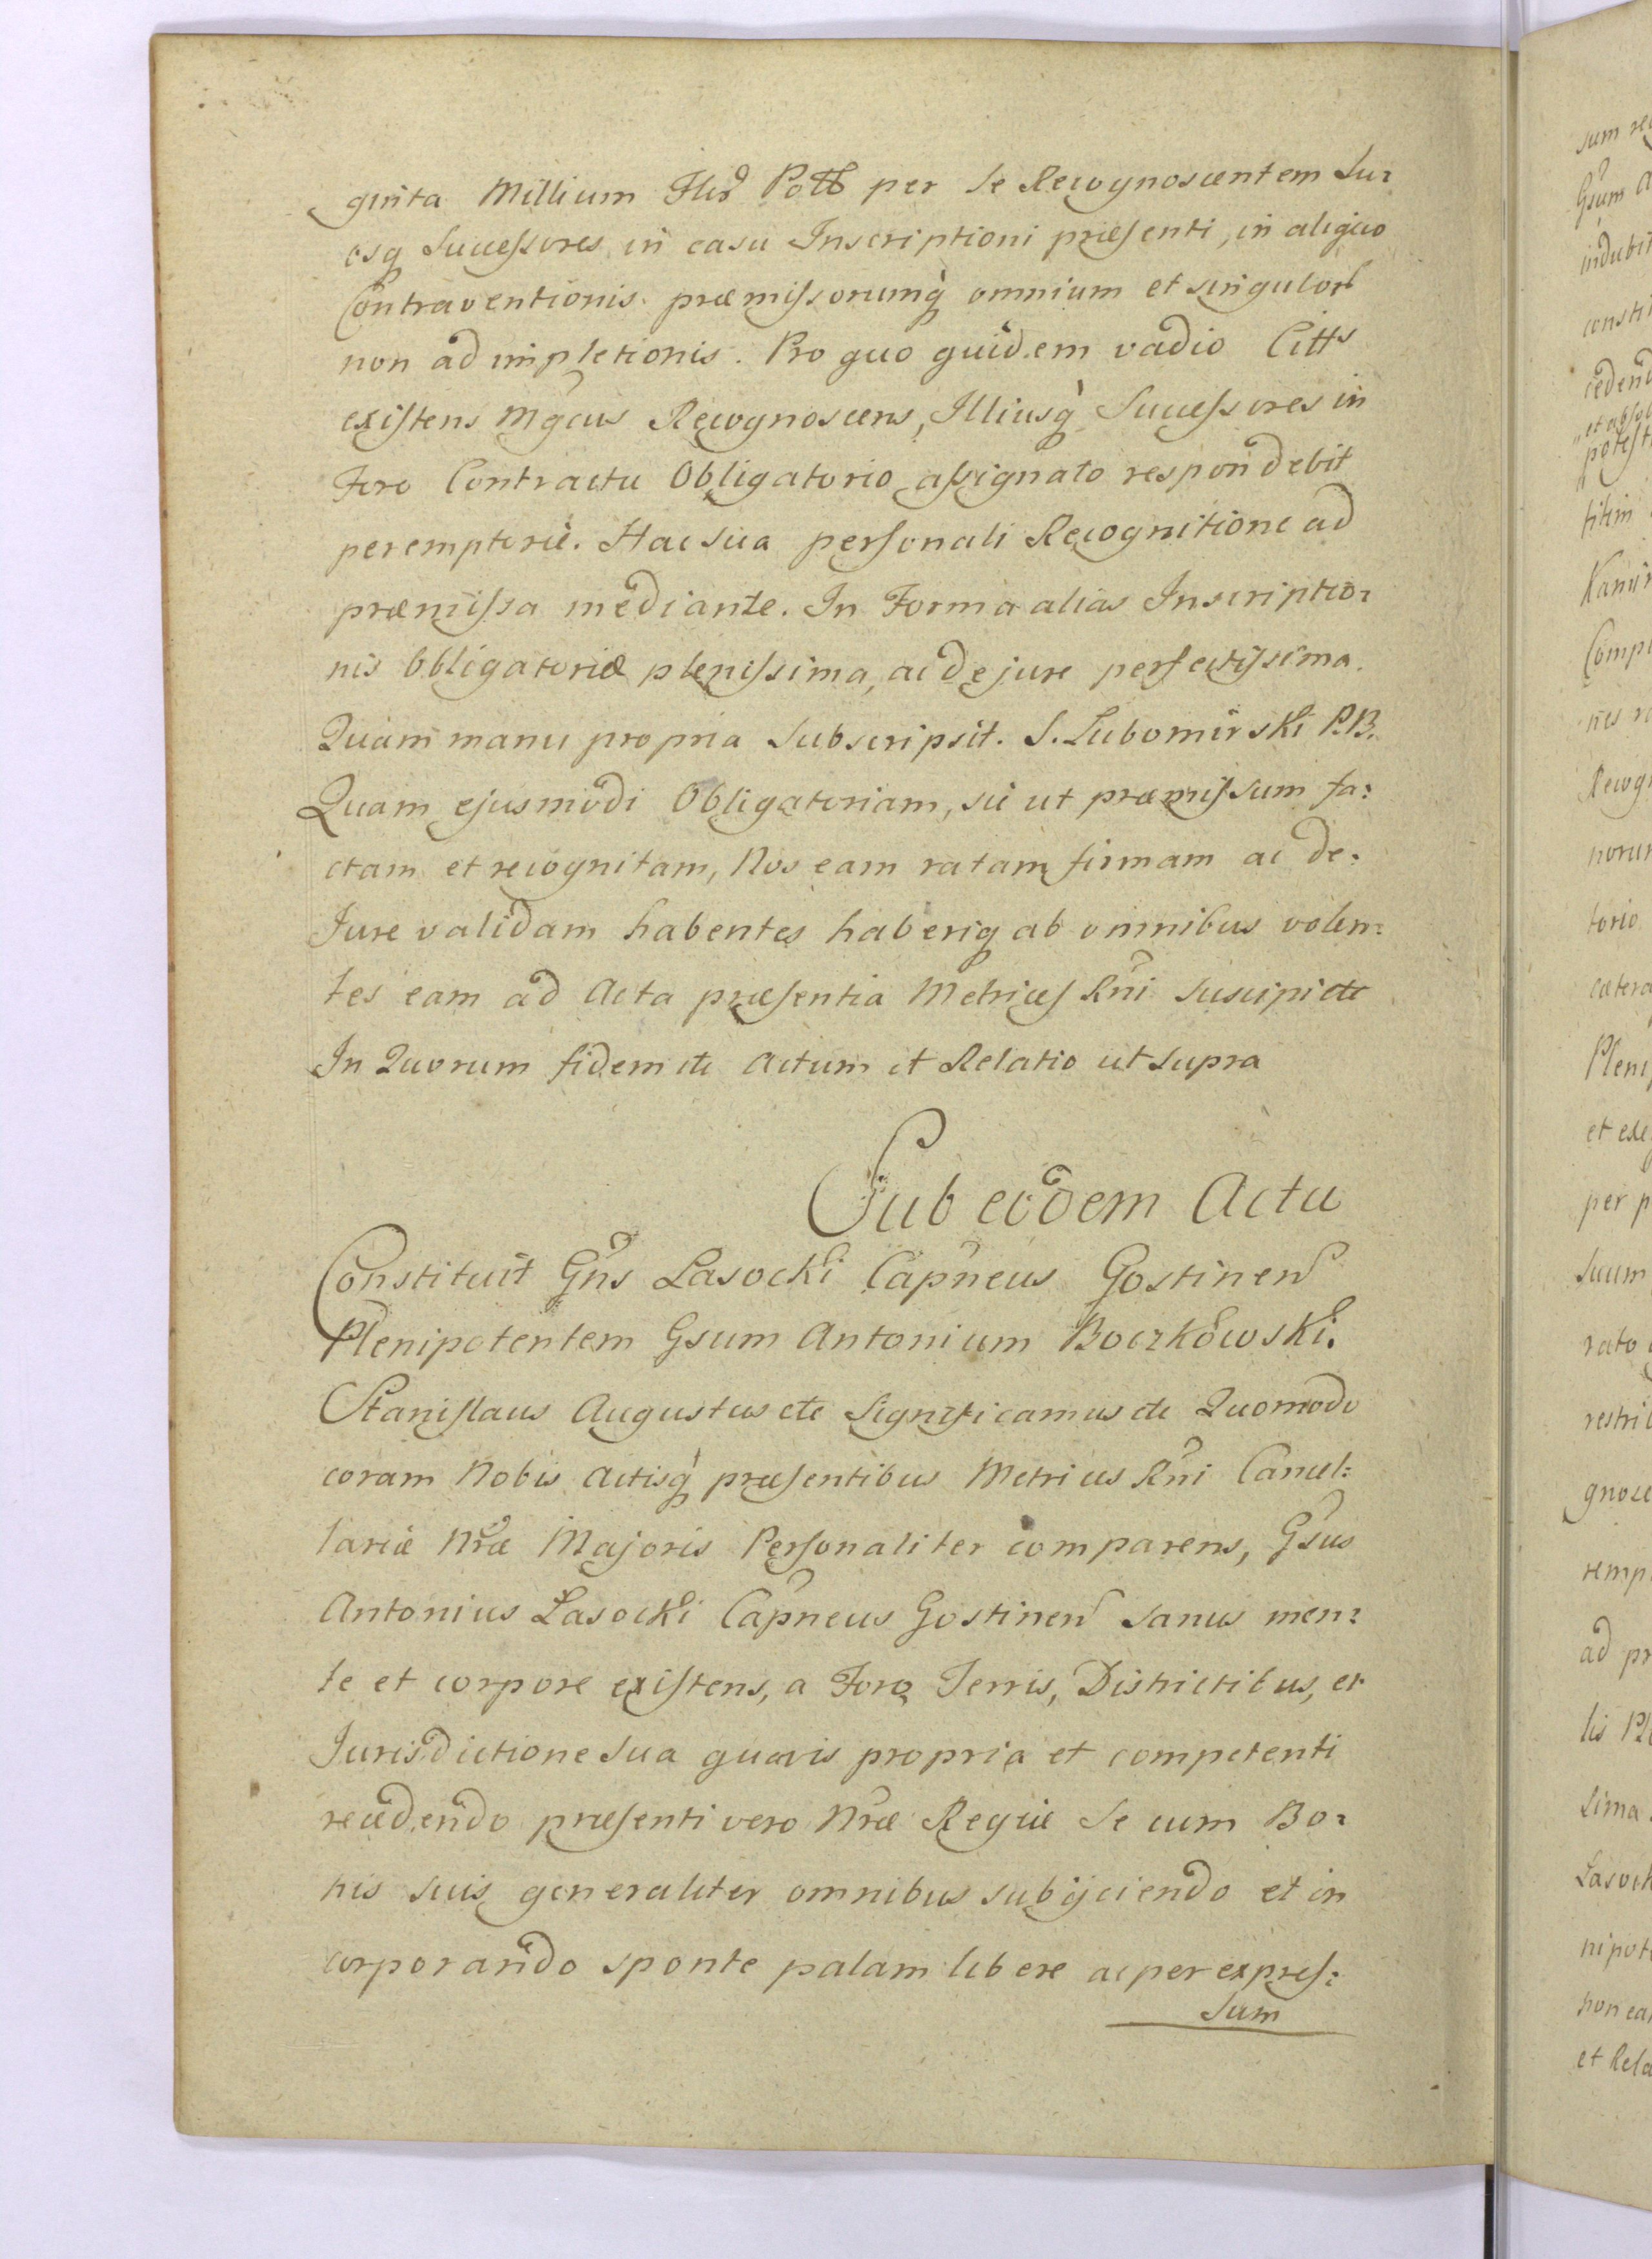 ginta Millium Flor Poll per se Recognoscentem Su-
osq Successores, in casu Inscriptioni præsenti, in aliquo
Contraventionis præmissorumq omnium et singulor
non ad impletionis. Pro quo quidem vadio Citts
existens Mgcus Recognoscens, Illiusq Successores in
Foro Contractu Obligatorio assignato respondebit
peremptoriè. Hac sua personali Recognitione ad
præmissa mediante. In Forma alias Inscriptio-
nis Obligatoriæ plenissima, ac de jure perfectissima.
Quam manu propria Subscripsit. S. Lubomirski P.B.
Quam ejusmodi Obligatoriam, sic ut præmissum fa-
ctam et recognitam, Nos eam ratam firmam ac de-
Jure validam habentes haberiq ab omnibus volen-
tes eam ad Acta præsentia Metrices Rni Suscipi etc
In Quorum fidem etc Actum et Relatio ut supra
Sub eodem Actu
Constituit Gns Lasocki Capneus Gostinen
Plenipotentem Gsum Antonium Boczkowski.
Stanislaus Augustus etc Significamus etc Quomodo
coram Nobis Actisq præsentibus Metrices Rni Cancel-
lariæ Nræ Majoris Personaliter comparens, Gsus
Antonius Lasocki Capneus Gostinen Sanus men-
te et corpore existens, a Foro Terris, Districtibus, et
Jurisdictione Sua quavis propria et competenti
recedendo præsenti vero Nræ Regiæ Se cum Bo-
nis suis generaliter omnibus subijciendo et in
corporando sponte palam libere ac per expres-
sum